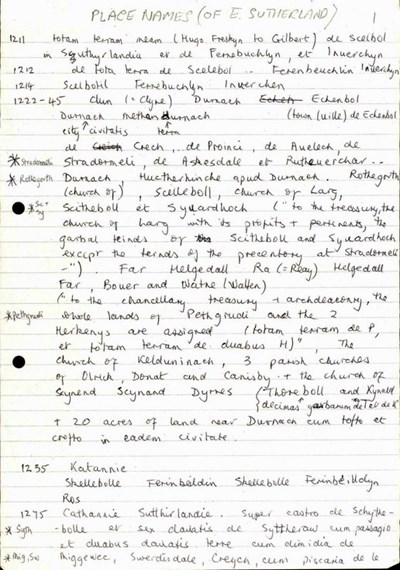 PLACE NAMES (OF E. SUTHERLAND) 1
1211 totam terram meam (Hugo Freskyn to Gilbert) de Scelbol
in Suthyrlandia et de Fernebuchlyn, et Inverchyn
1212 de tota terra de Scelebol .. Ferenbeuchlin Inverchyn
1214 Scelbotil Fernebuchlyn Inverchen
1222-45 Clun (= Clyne) Durnach Echenbol
Durnach methandurnach (town (uille) de Echenbol
city civitatis terra
de Crech, .. de Proinci, de Auelech, de
* Stradormeli Stradormeli, de Askesdale et Rutheuerchar ..
* Rothegorth Durnach, Huctherhinche apud Durnach. Rothegorth
(church of), Scelleboll, church of Larg,
* Sc + Sy Scitheboll et Sywardhoch ("to the treasury, the
church of Larg with its profits + pertinents, the
garbal teinds of Scitheboll and Sywardhoch
except the teinds of the precentory at Stradormeli
-"). Far Helgedall Ra (= Reay) Helgedall
Far, Bouer and Watne (Watten)
("to the chancellary treasury + archdeaconry, the
* Pethgrudi whole lands of Pethgrudi and the 2
Herkenys are assigned (totam terram de P,
et totam terram de duabus H)", The
church of Kelduninach, 3 parish churches
of Olrich, Donat and Canisby. + the church of
Scynend Scynard Dyrnes (Thoreboll and Kynnald
(decimas garbarum de T et de K
+ 20 acres of land near Durnach cum tofto et
crofto in eadem civitate.
1255 Katannie
Shellebolle Ferinbeldin Shelleboll Ferinbeilldyn
Ros
1275 Cathannie Sutthirlandie. Super castro de Scythe-
* Syth -bolle et sex dauatis de Syttheraw cum passagio
et duabus dauatis terre cum dimidia de
* Mig, Sw Miggewec, Swerdisdale, Creych, cum piscaria de le